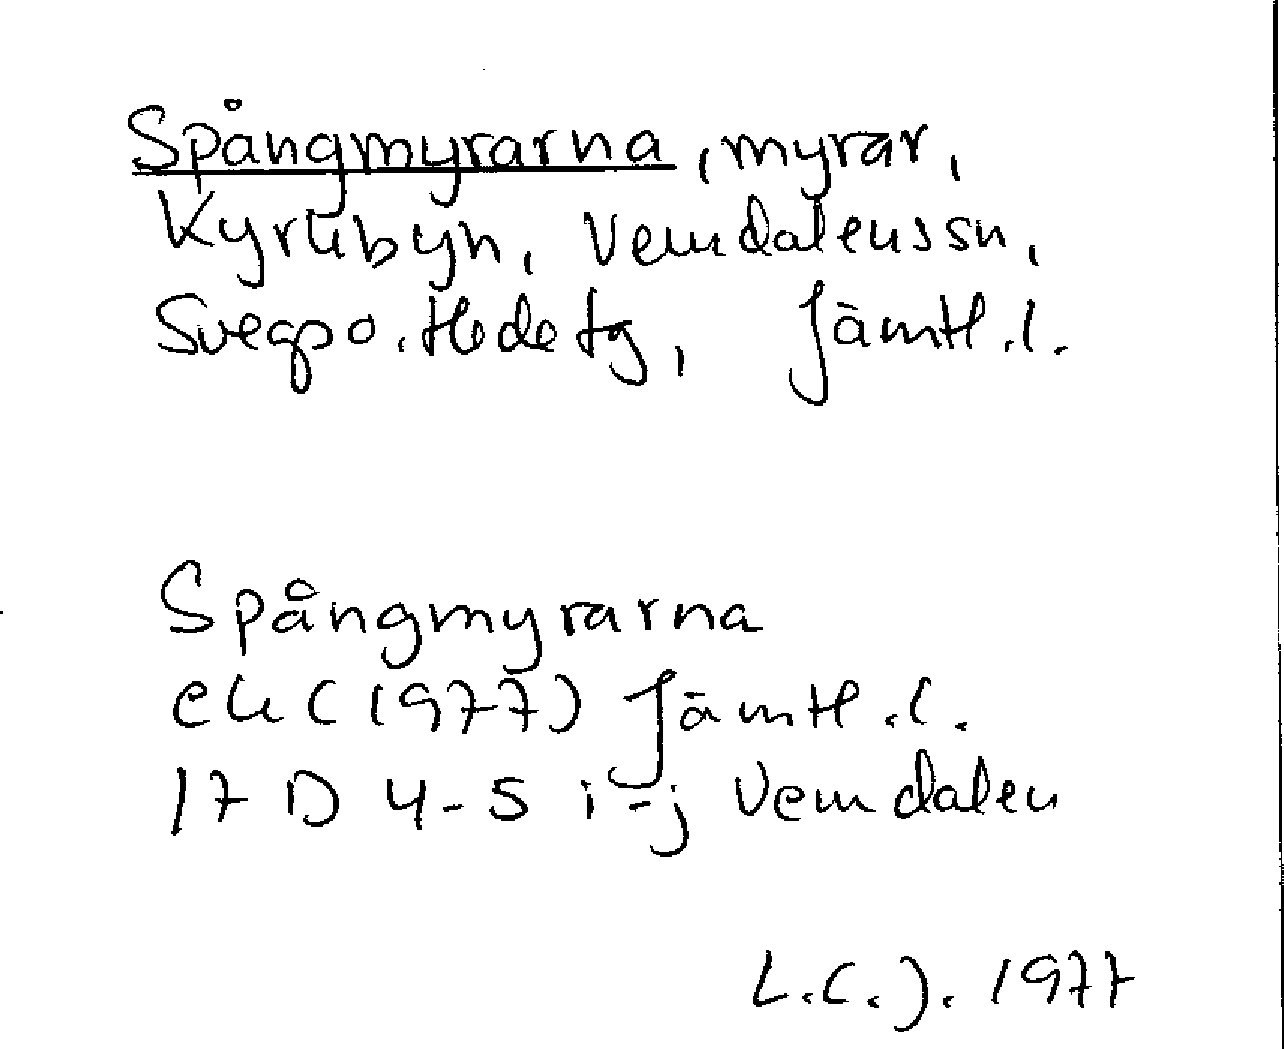 Spångmyrarna, myrar,
Kyrkbyn, Vemdalens sn,
Svegs po. Hede tg, Jämtl. l.
Spångmyrarna
ek (1977) Jämtl. l.
17 D 4-5 i-j Vemdalen
L.C.J. 1977